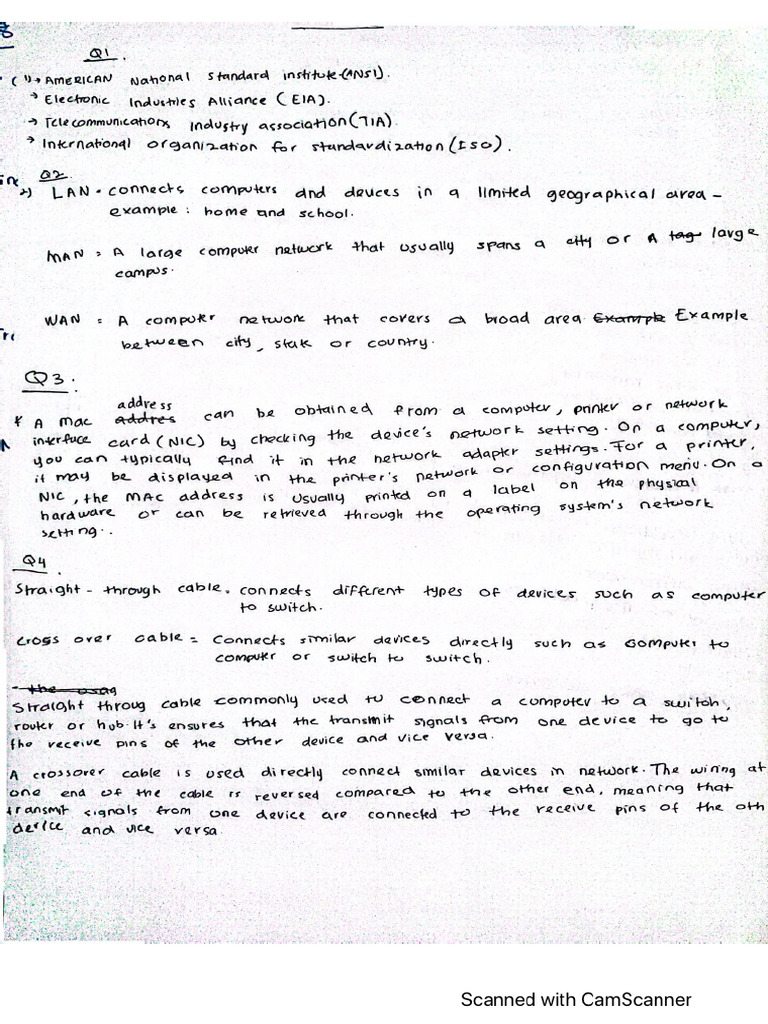 Q1.
(1)→ AMERICAN National Standard institute (ANSI).
→ Electronic Industries Alliance (EIA).
→ Telecommunications Industry association (TIA)
→ International organization for standardization (ISO).
Q2
2) LAN = connects computers and devices in a limited geographical area -
example: home and school.
MAN = A large computer network that usually spans a city or A tag large
campus.
WAN = A computer network that covers a broad area Example Example
between city, state or country.
Q3:
address
* A mac addres can be obtained from a computer, printer or network
interface card (NIC) by checking the device's network setting. On a computer,
you can typically find it in the network adapter settings. For a printer,
it may be displayed in the printer's network or configuration menu. On a
NIC, the MAC address is usually printed on a label on the physical
hardware or can be retrieved through the operating system's network
setting..
Q4.
Straight - through cable = connects different types of devices such as computer
to switch.
Cross over cable = Connects similar devices directly such as computer to
computer or switch to switch.
- the usag
Straight throug cable commonly used to connect a computer to a switch,
router or hub. It's ensures that the transmit signals from one device to go to
the receive pins of the other device and vice versa.
A crossover cable is used directly connect similar devices in network. The wiring at
one end of the cable is reversed compared to the other end, meaning that
transmit signals from one device are connected to the receive pins of the oth
device and vice versa
Scanned with CamScanner